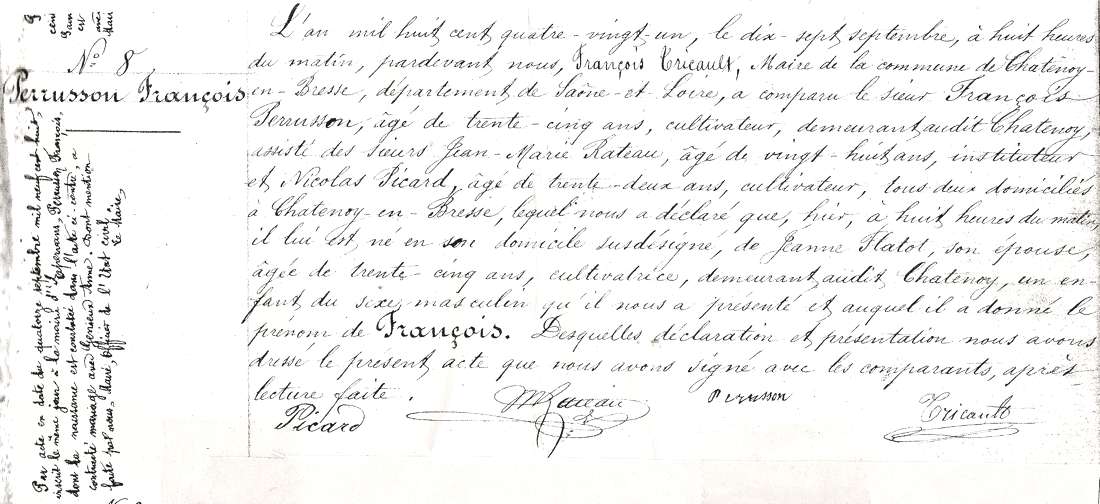 G
cen
Gan
est
ave
Mai
N° 8
Perrusson François
Par acte en date du quatorze septembre mil neuf cent huit,
inscrit le même jour à la mairie d'Epervans, Perrusson François,
dont la naissance est constatée dans l'acte ci-contre, a
contracté mariage avec Anne. Dont mention
faite par nous, Maire, Officier de l'Etat civil.
Le Maire,
L'an mil huit cent quatre-vingt-un, le dix-sept septembre, à huit heures
du matin, pardevant nous, François Tricault, Maire de la commune de Chatenoy-
en-Bresse, département de Saône-et-Loire, a comparu le sieur François
Perrusson, âgé de trente-cinq ans, cultivateur, demeurant audit Chatenoy,
assisté des sieurs Jean-Marie Rateau, âgé de vingt-huit ans, instituteur
et Nicolas Picard, âgé de trente-deux ans, cultivateur, tous deux domiciliés
à Chatenoy-en-Bresse, lequel nous a déclaré que, hier, à huit heures du matin,
il lui est né en son domicile susdésigné, de Jeanne Flatot, son épouse,
âgée de trente-cinq ans, cultivatrice, demeurant audit Chatenoy, un en-
fant du sexe masculin qu'il nous a présenté et auquel il a donné le
prénom de François. Desquelles déclaration et présentation nous avons
dressé le présent acte que nous avons signé avec les comparants, après
lecture faite.
Picard
Rateau
Perrusson
Tricault